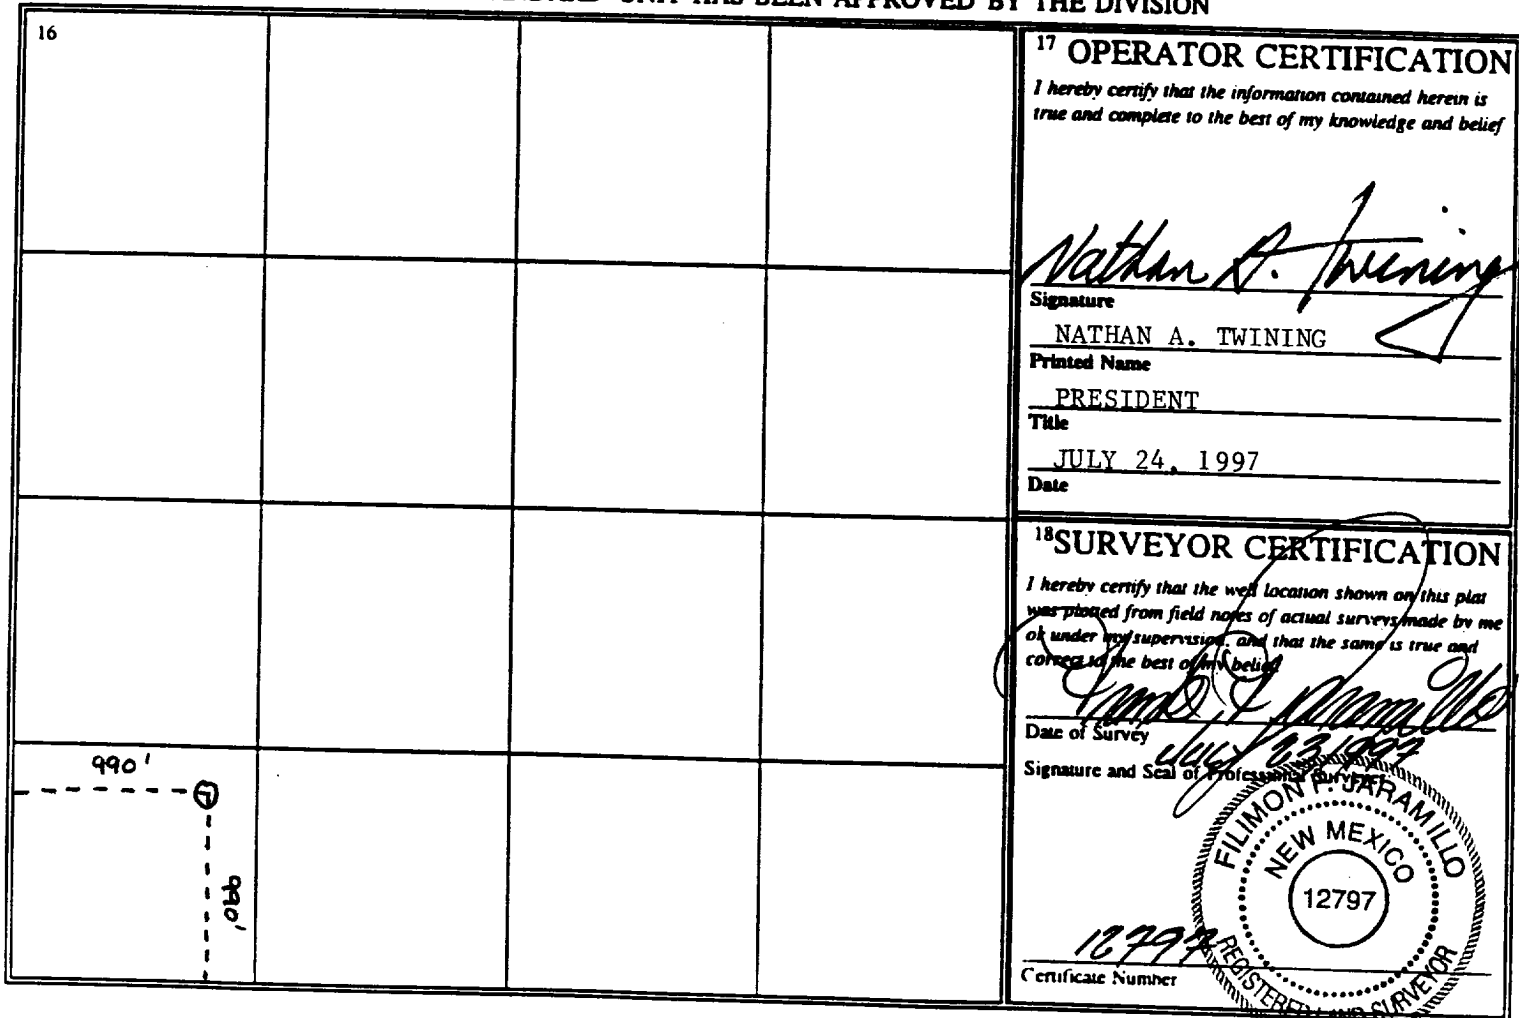 UNIT HAS BEEN APPROVED BY THE DIVISION
16
990'
990'
17 OPERATOR CERTIFICATION
I hereby certify that the information contained herein is
true and complete to the best of my knowledge and belief
Nathan A. Twining
Signature
NATHAN A. TWINING
Printed Name
PRESIDENT
Title
JULY 24, 1997
Date
18 SURVEYOR CERTIFICATION
I hereby certify that the well location shown on this plat
was plotted from field notes of actual surveys made by me
or under my supervision, and that the same is true and
correct to the best of my belief.
Date of Survey
July 23 1997
Signature and Seal of Professional Surveyer
FILIMON F. JARAMILLO
NEW MEXICO
12797
REGISTERED LAND SURVEYOR
12797
Certificate Number